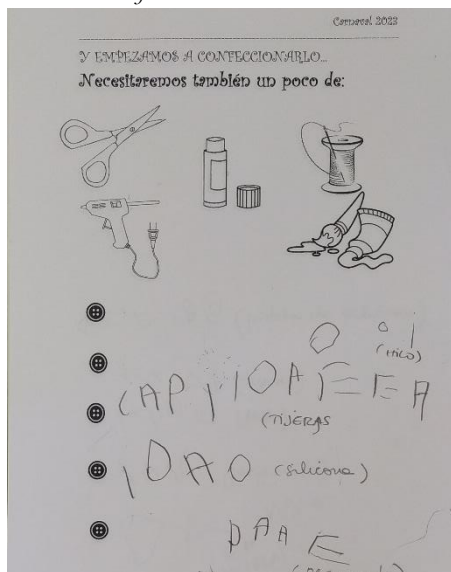 Carnaval 2023
Y EMPEZAMOS A CONFECCIONARLO...
Necesitaremos también un poco de:
O O I
(HILO)
CAP I I O A I E E A
(TIJERAS
I O A O (Silicona)
P A A E